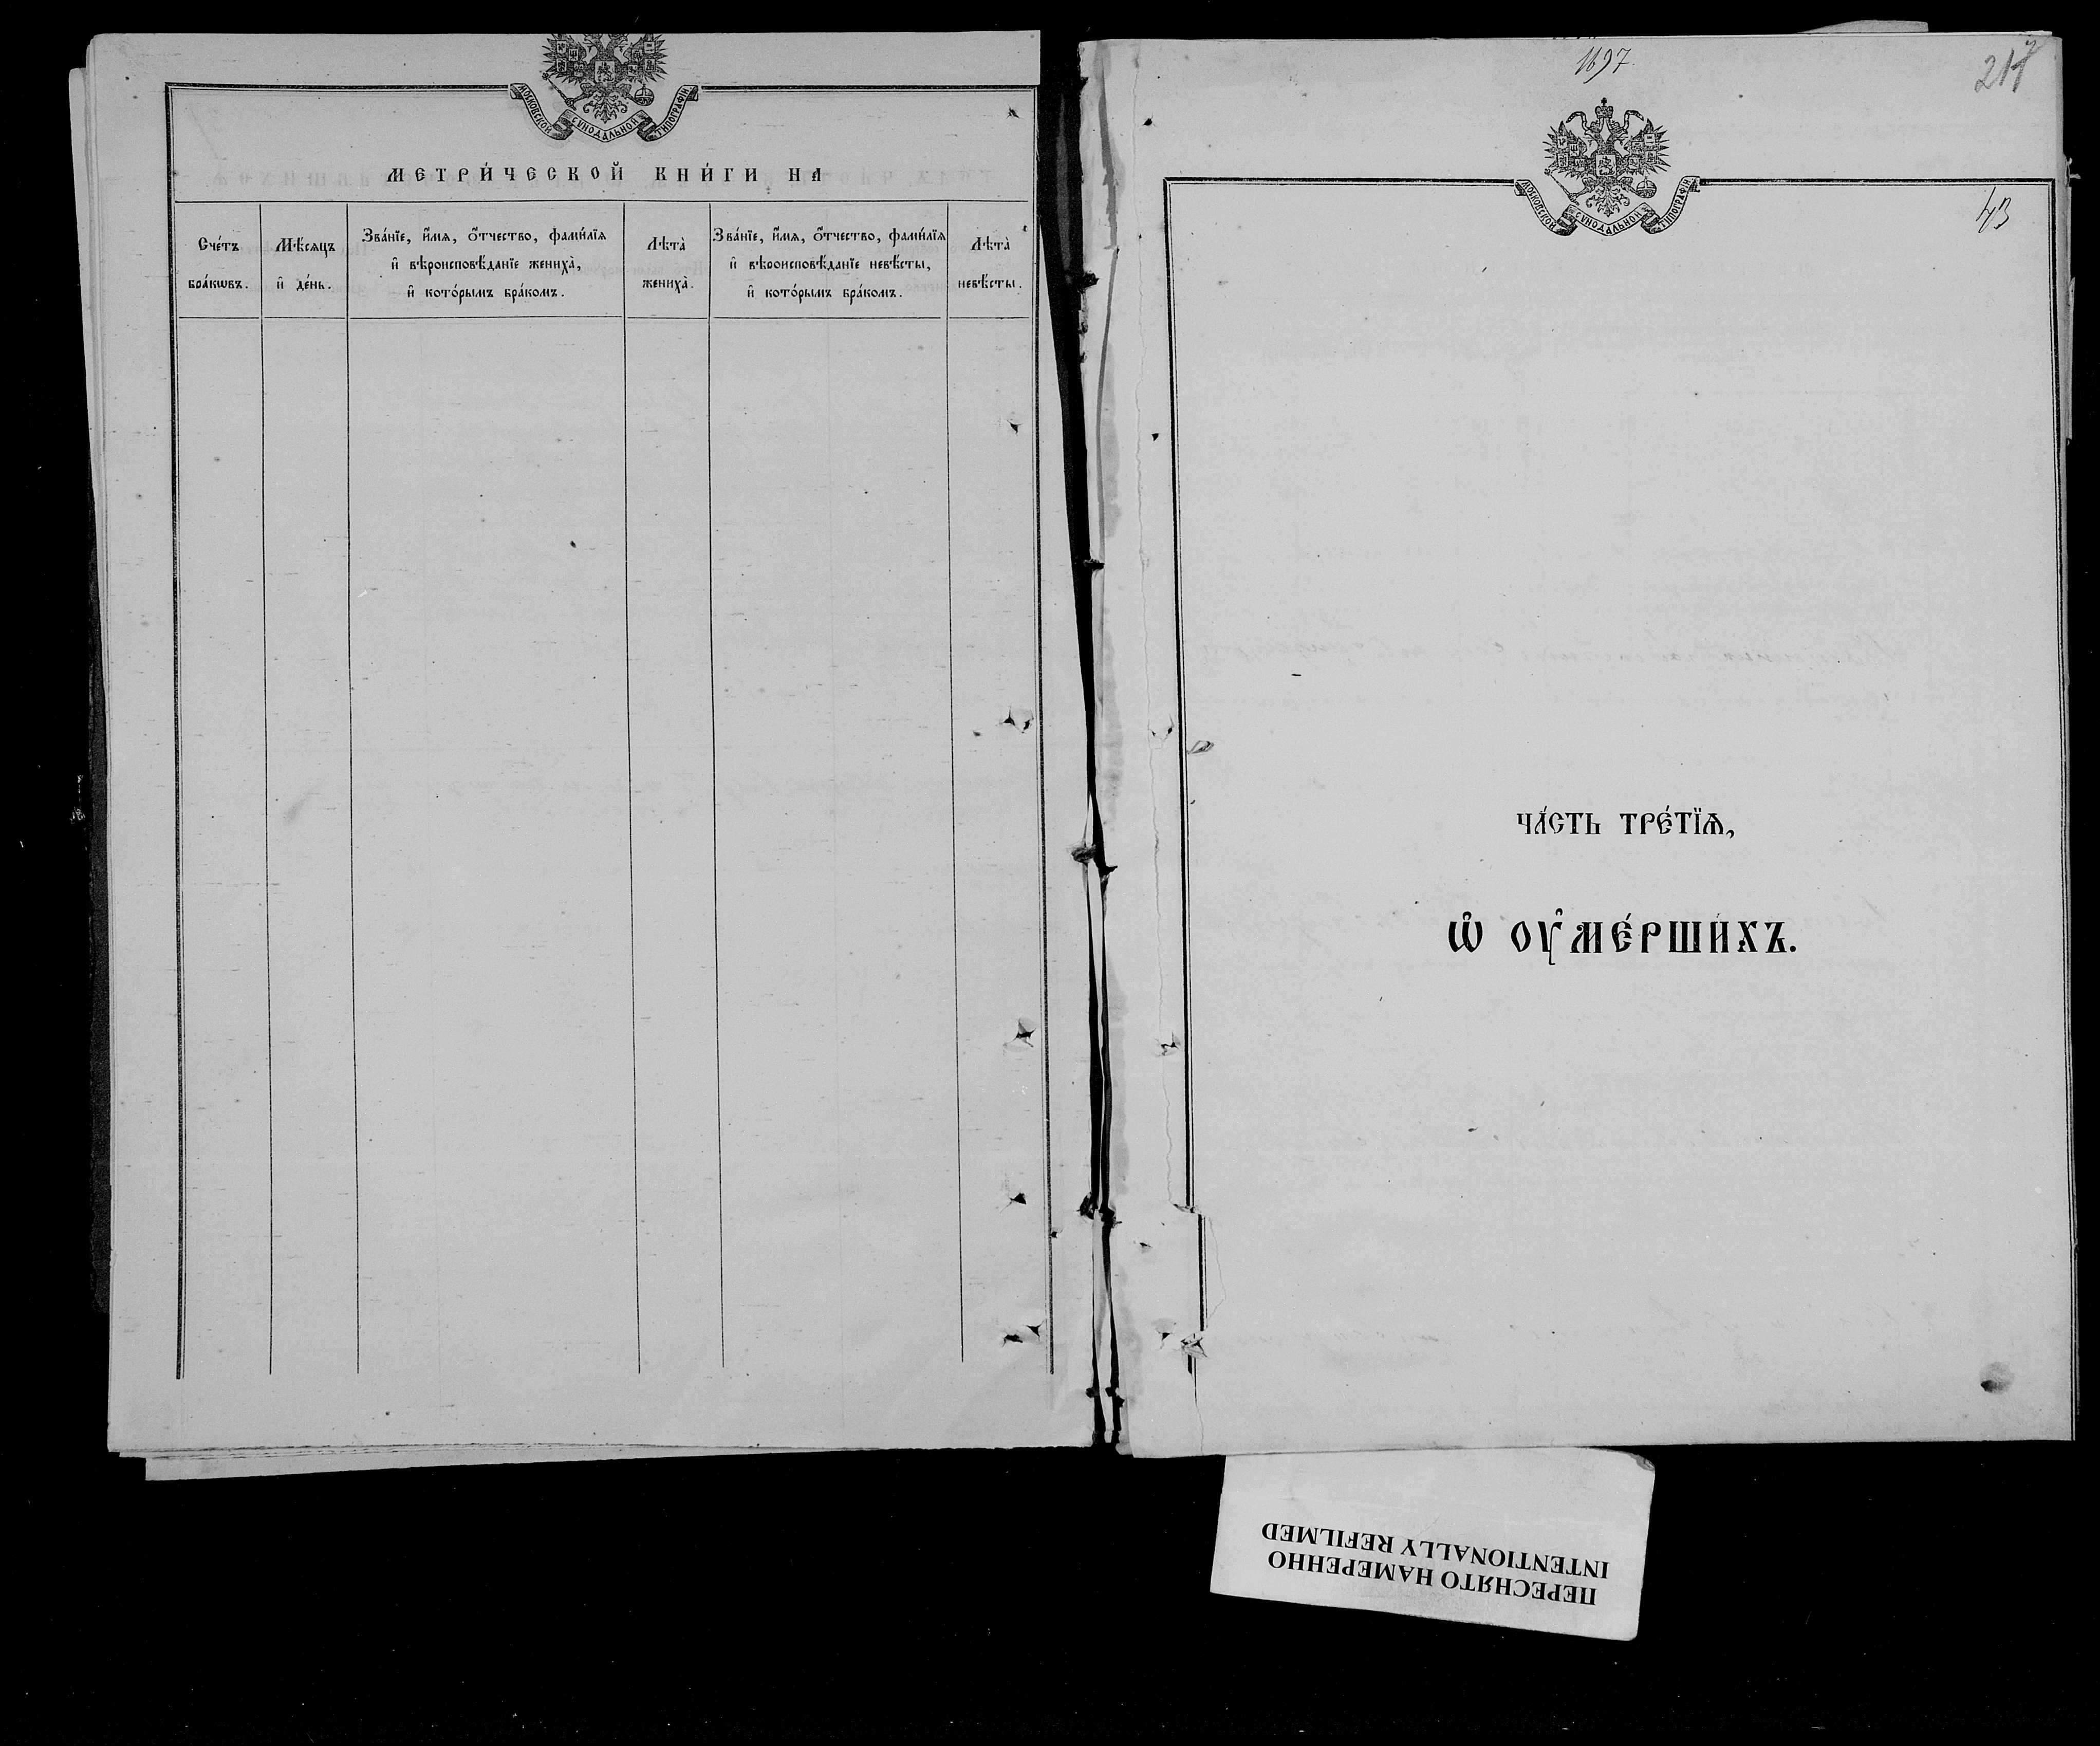 МОСКОВСКОЙ СѴНОДАЛЬНОЙ ТИПОГРАФІИ
МЕТРИ́ЧЕСКОЙ КНИ́ГИ НА
Сче́тъ
бра́кѡвъ.
Мѣ́сяцъ
и҆ де́нь.
Зва́нїе, и҆́мя, ѻ҆́тчество, фами́лїя
и҆ вѣроисповѣ́данїе жениха̀,
и҆ кото́рымъ бра́комъ.
Лѣта̀
жениха̀.
Зва́нїе, и҆́мя, ѻ҆́тчество, фами́лїя
и҆ вѣроисповѣ́данїе невѣ́сты,
и҆ кото́рымъ бра́комъ.
Лѣта̀
невѣ́сты.
1697.
МОСКОВСКОЙ СѴНОДАЛЬНОЙ ТИПОГРАФІИ
43
ЧА́СТЬ ТРЕ́ТЇѦ,
Ѡ҆ ОУ҆МЕ́РШИХЪ.
ПЕРЕСНЯТО НАМЕРЕННО
INTENTIONALLY REFILMED